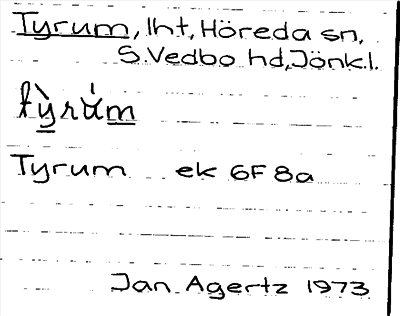 Tyrum, lht, Höreda sn,
S. Vedbo hd, Jönk.l.
Tyrum ek 6F 8a
Jan Agertz 1973